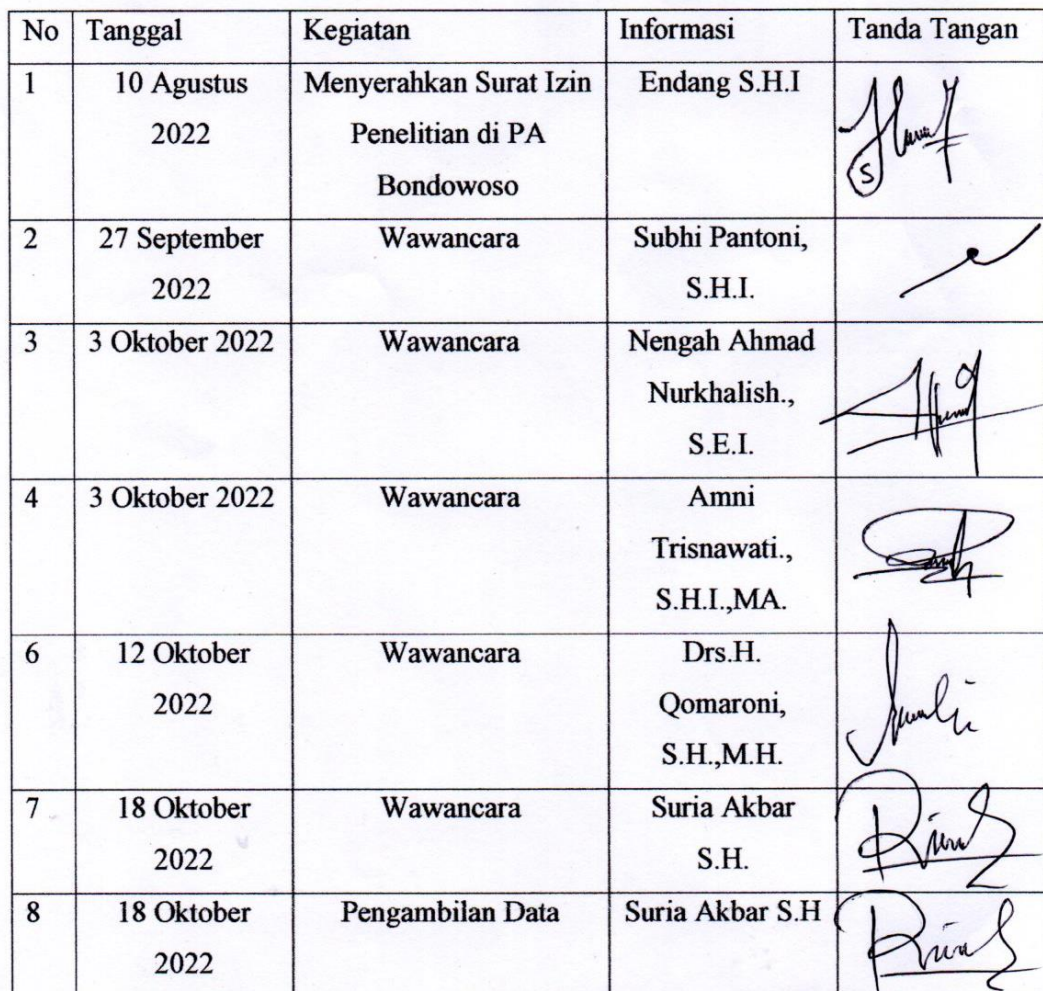 No Tanggal Kegiatan Informasi Tanda Tangan
1 10 Agustus Menyerahkan Surat Izin Endang S.H.I
2022 Penelitian di PA
Bondowoso
2 27 September Wawancara Subhi Pantoni,
2022 S.H.I.
3 3 Oktober 2022 Wawancara Nengah Ahmad
Nurkhalish.,
S.E.I.
4 3 Oktober 2022 Wawancara Amni
Trisnawati.,
S.H.I.,MA.
6 12 Oktober Wawancara Drs.H.
2022 Qomaroni,
S.H.,M.H.
7 18 Oktober Wawancara Suria Akbar
2022 S.H.
8 18 Oktober Pengambilan Data Suria Akbar S.H
2022